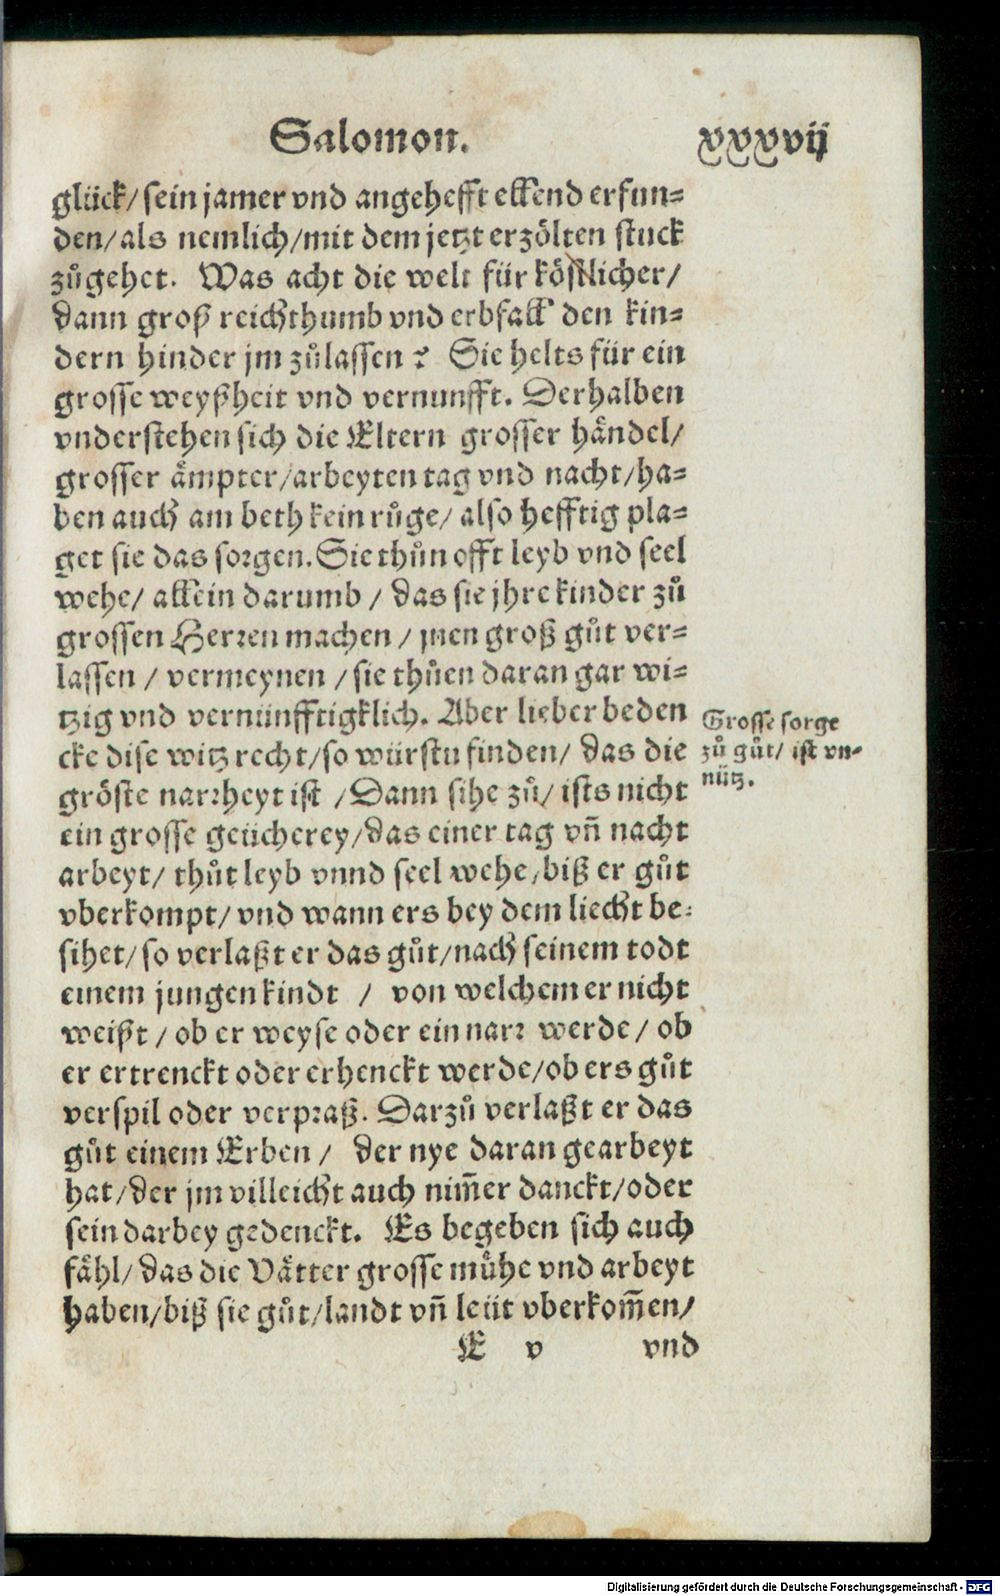 Salomon. xxxvij
glück/ sein jamer vnd angehefft ellend erfun⸗
den/ als nemlich/ mit dem jetzt erzölten stuck
zůgehet. Was acht die welt für köstlicher/
dann groß reichthumb vnd erbfall den kin⸗
dern hinder jm zůlassen? Sie helts für ein
grosse weyßheit vnd vernunfft. Derhalben
vnderstehen sich die Eltern grosser håndel/
grosser åmpter/ arbeyten tag vnd nacht/ ha⸗
ben auch am beth kein růge/ also hefftig pla⸗
get sie das sorgen. Sie thůn offt leyb vnd seel
wehe/ allein darumb / das sie jhre kinder zů
grossen Herren machen / jnen groß gůt ver⸗
lassen / vermeynen / sie thůen daran gar wi⸗
tzig vnd vernünfftigklich. Aber lieber beden
cke dise witz recht/ so würstu finden/ das die
gröste narrheyt ist / Dann sihe zů/ ists nicht
ein grosse geücherey/ das einer tag vñ nacht
arbeyt/ thůt leyb vnnd seel wehe/ biß er gůt
vberkompt/ vnd wann ers bey dem liecht be⸗
sihet/ so verlaßt er das gůt/ nach seinem todt
einem jungen kindt / von welchem er nicht
weißt / ob er weyse oder ein narr werde / ob
er ertrenckt oder erhenckt werde/ ob ers gůt
verspil oder verpraß. Darzů verlaßt er das
gůt einem Erben / der nye daran gearbeyt
hat/ der jm villeicht auch nim̃er danckt/ oder
sein darbey gedenckt. Es begeben sich auch
fåhl/ das die Våtter grosse mühe vnd arbeyt
haben/ biß sie gůt/ landt vñ leüt vberkom̃en/
E v vnd
Grosse sorge
zů gůt/ ist vn⸗
nütz.
Digitalisierung gefördert durch die Deutsche Forschungsgemeinschaft - DFG